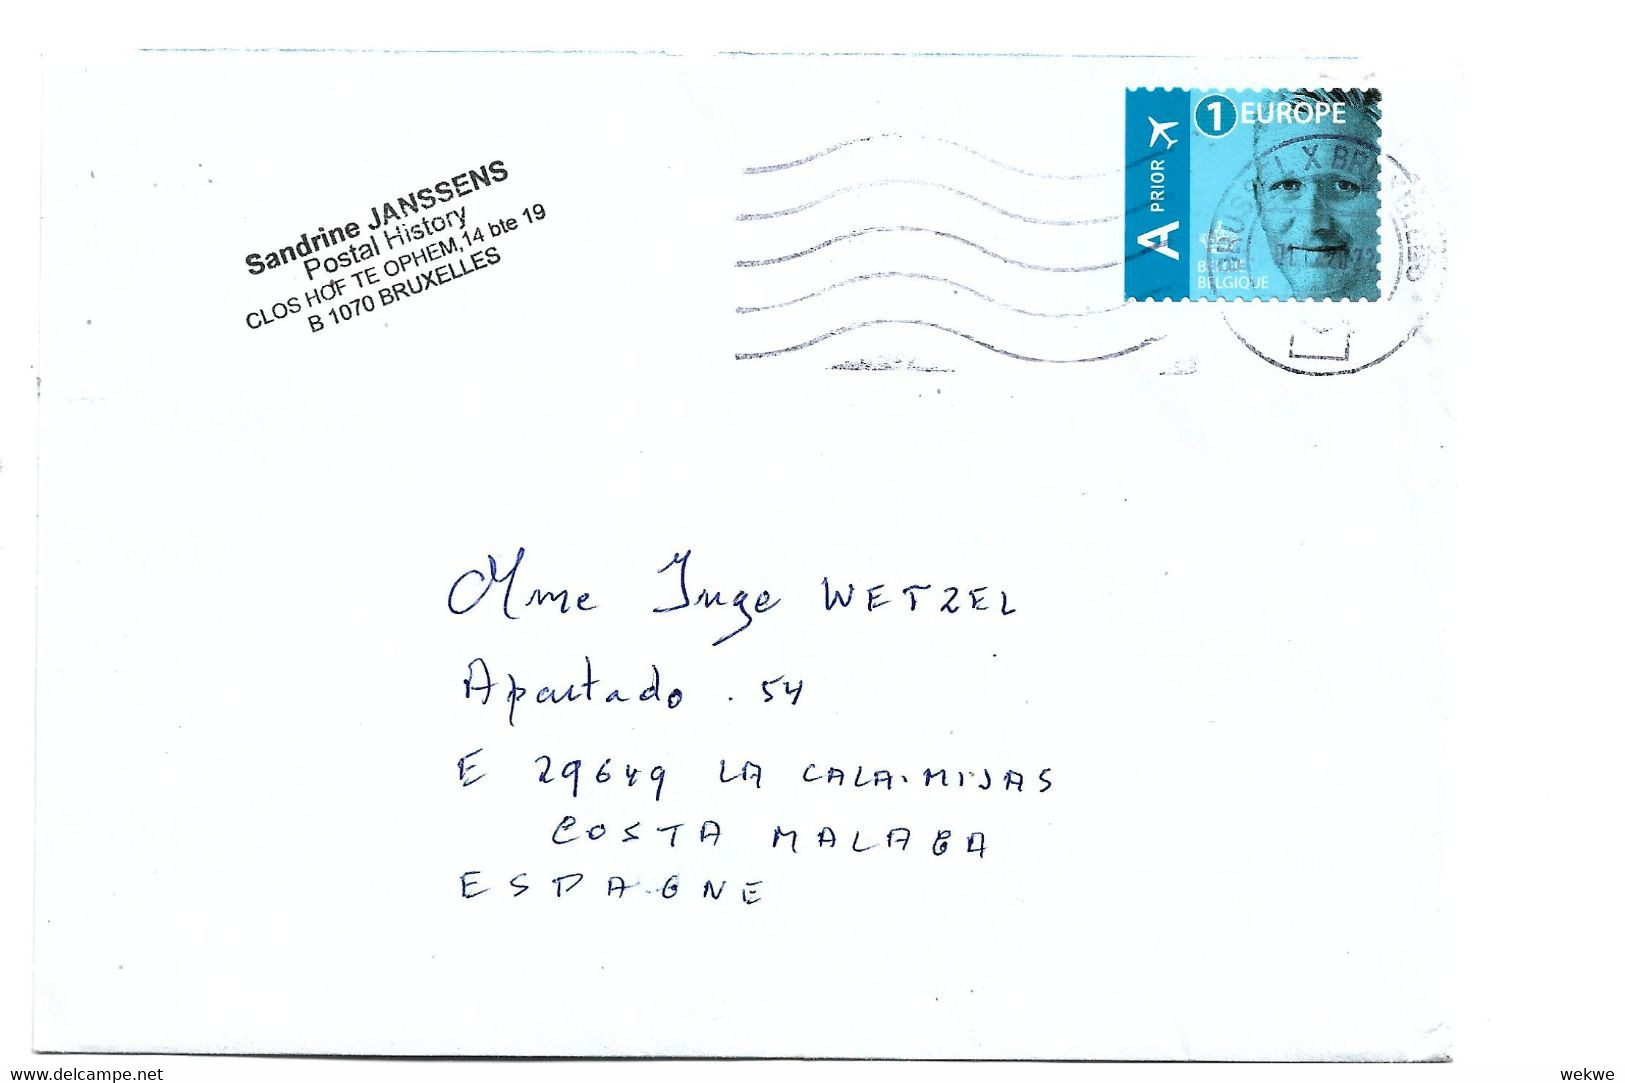 Sandrine JANSSENS
Postal History
CLOS HOF TE OPHEM,14 bte 19
B 1070 BRUXELLES
1 EUROPE
A PRIOR
BELGIË
BELGIQUE
Mme Inge WETZEL
Apartado . 54
E 29649 LA CALA. MIJAS
COSTA MALAGA
ESPAGNE
www.delcampe.net
wekwe